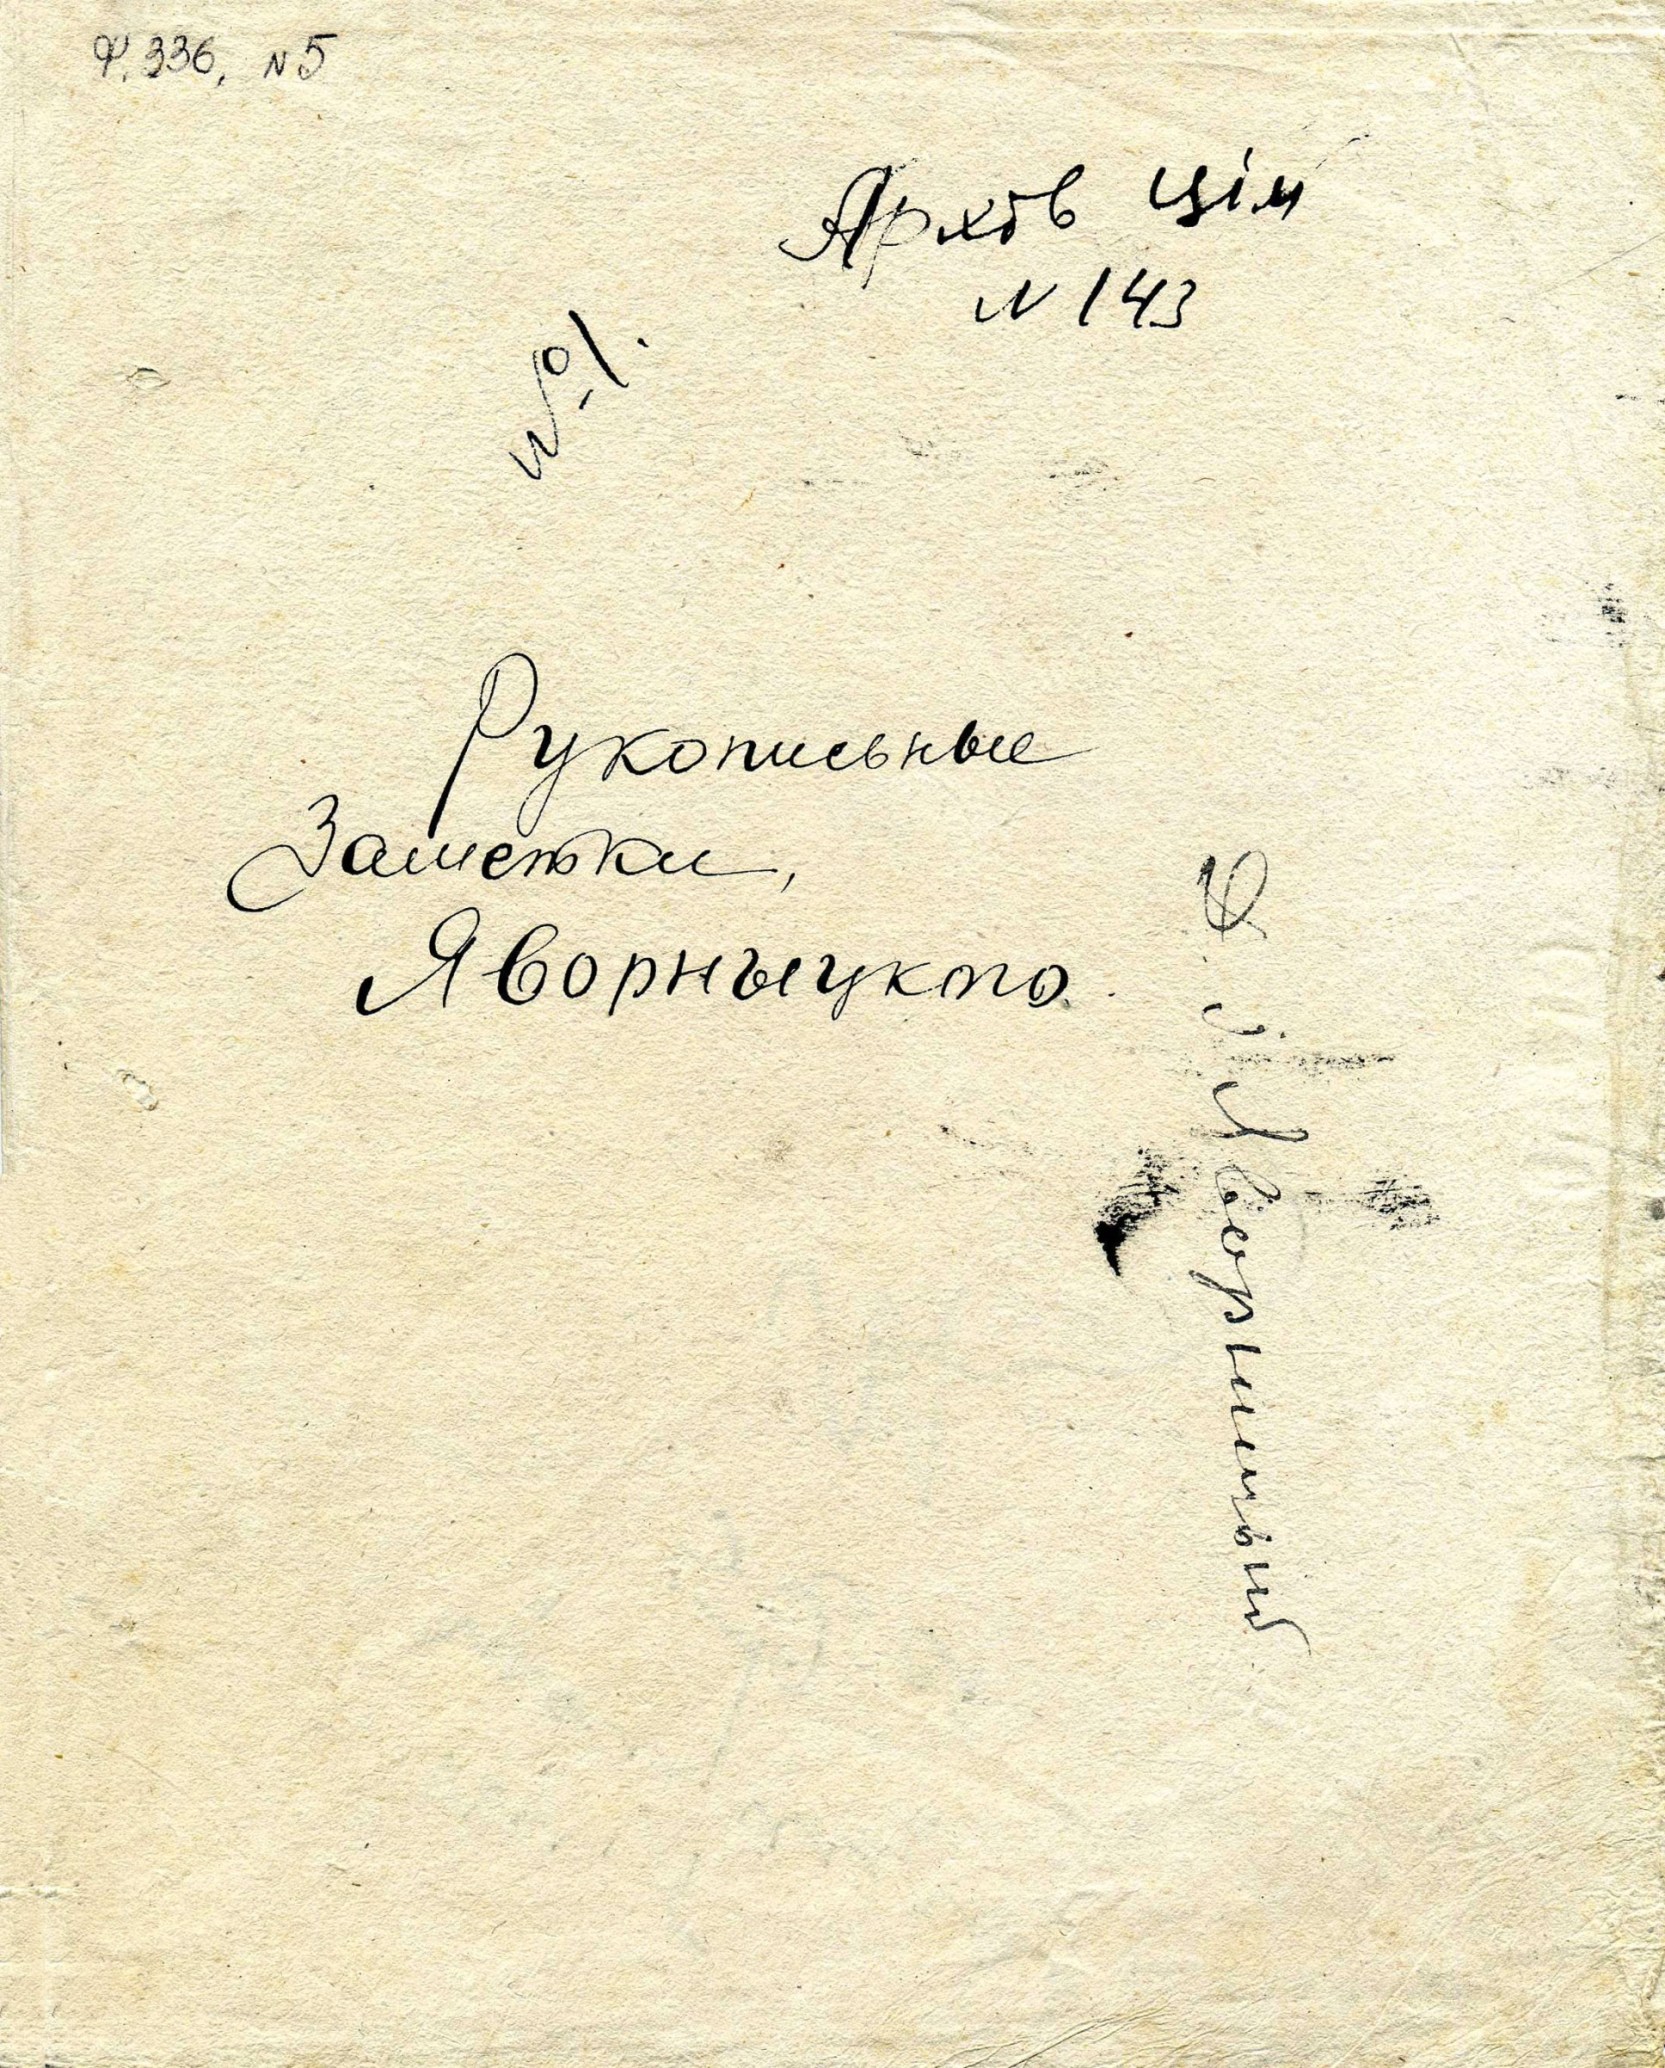 Ф. 336, N 5
Архів ЦІМ
N 143
№ 1.
Рукописные
Заметки,
Яворныцкого.
Яворницький